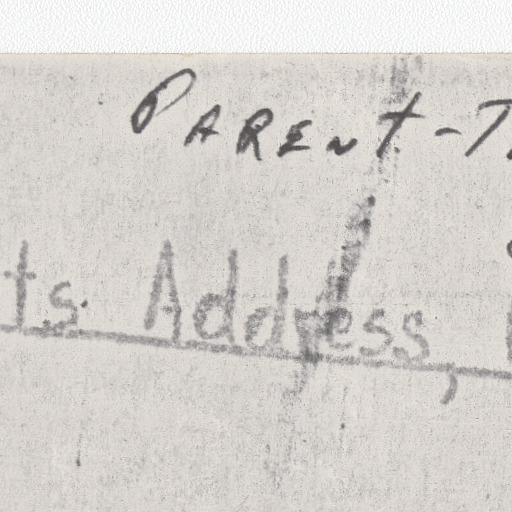 PARENT-T
ts. Address,